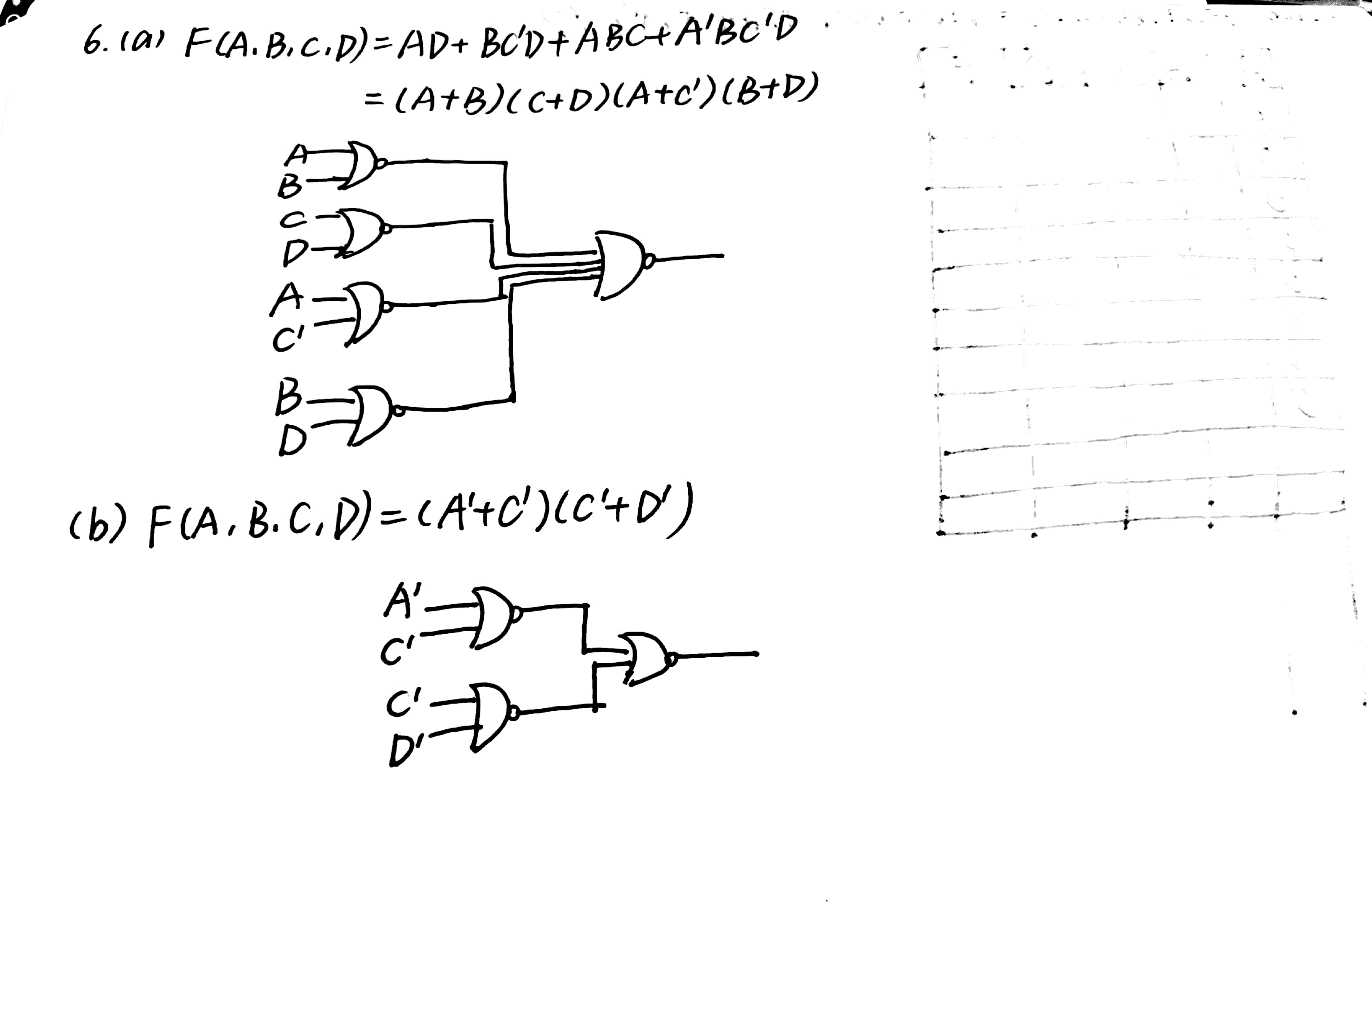 6. (a) F(A.B.C.D)=AD+BC'D+ABC+A'BC'D
=(A+B)(C+D)(A+C')(B+D)
A
B
C
D
A
C'
B
D
(b) F(A,B.C,D)=(A'+C')(C'+D')
A'
C'
C'
D'